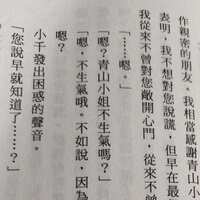 作親密的朋友。我相當感謝青山小
表明，我不想對您說謊，但早在最
我從來不曾對您敞開心門，從來不曾
「……嗯。」
「嗯？青山小姐不生氣嗎？」
「嗯，不生氣哦。不如說，因為
嗯？
小千發出困惑的聲音。
「您說早就知道了……？」